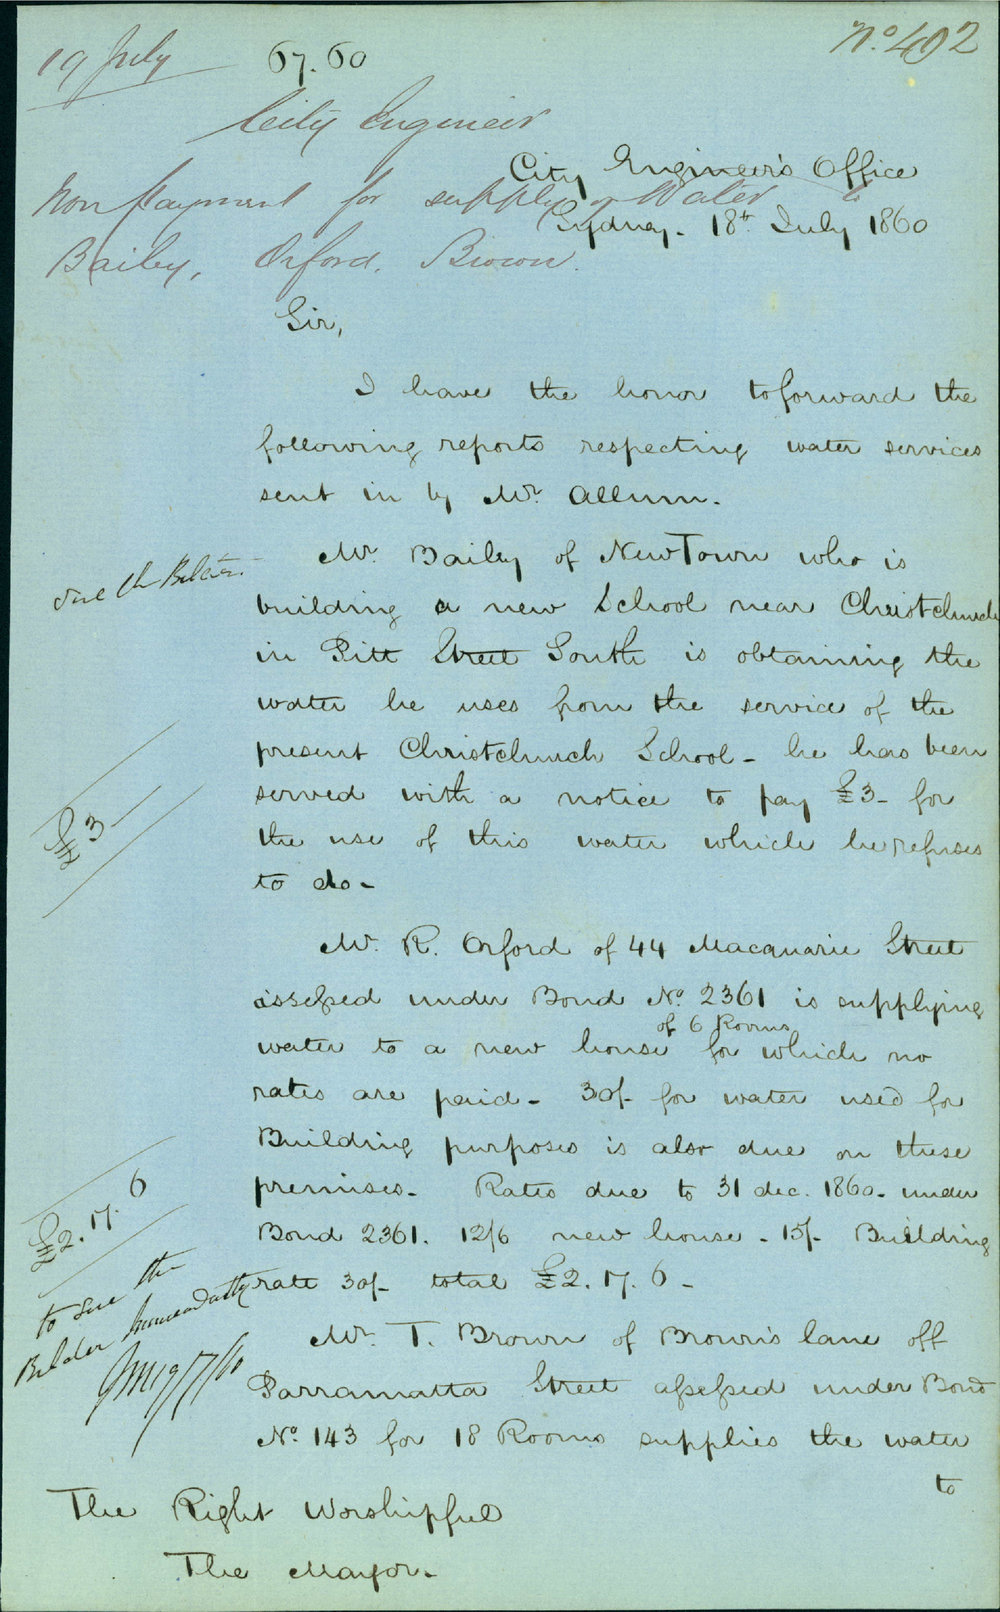 No. 402
19 July
67.60
City Engineer
Non payment for supply of Water to
Bailey, Orford, Brown.
City Engineer's Office
Sydney. 18th July 1860
Sir,
I have the honor to forward the
following reports respecting water services
sent in by Mr. Allum.
Mr Bailey of NewTown who is
building a new School near Christchurch
in Pitt Street South is obtaining the
water he uses from the service of the
present Christchurch School - he has been
served with a notice to pay £3 - for
the use of this water which he refuses
to do -
sue the Belder
£3 -
Mr. R. Orford of 44 Macquarie Street
assessed under Bond No. 2361 is supplying
water to a new house of 6 Rooms for which no
rates are paid - 30/- for water used for
Building purposes is also due on these
premises - Rates due to 31 dec. 1860 - under
Bond 2361. 12/6 new house - 15/- Building
rate 30/- total £2. 17. 6 -
£2. 17. 6
to sue the
Belder Immediately
JM 19/7/60
Mr. T. Brown of Brown's lane off
Parramatta Street assessed under Bond
No. 143 for 18 Rooms supplies the water
to
The Right Worshipful
The Mayor -